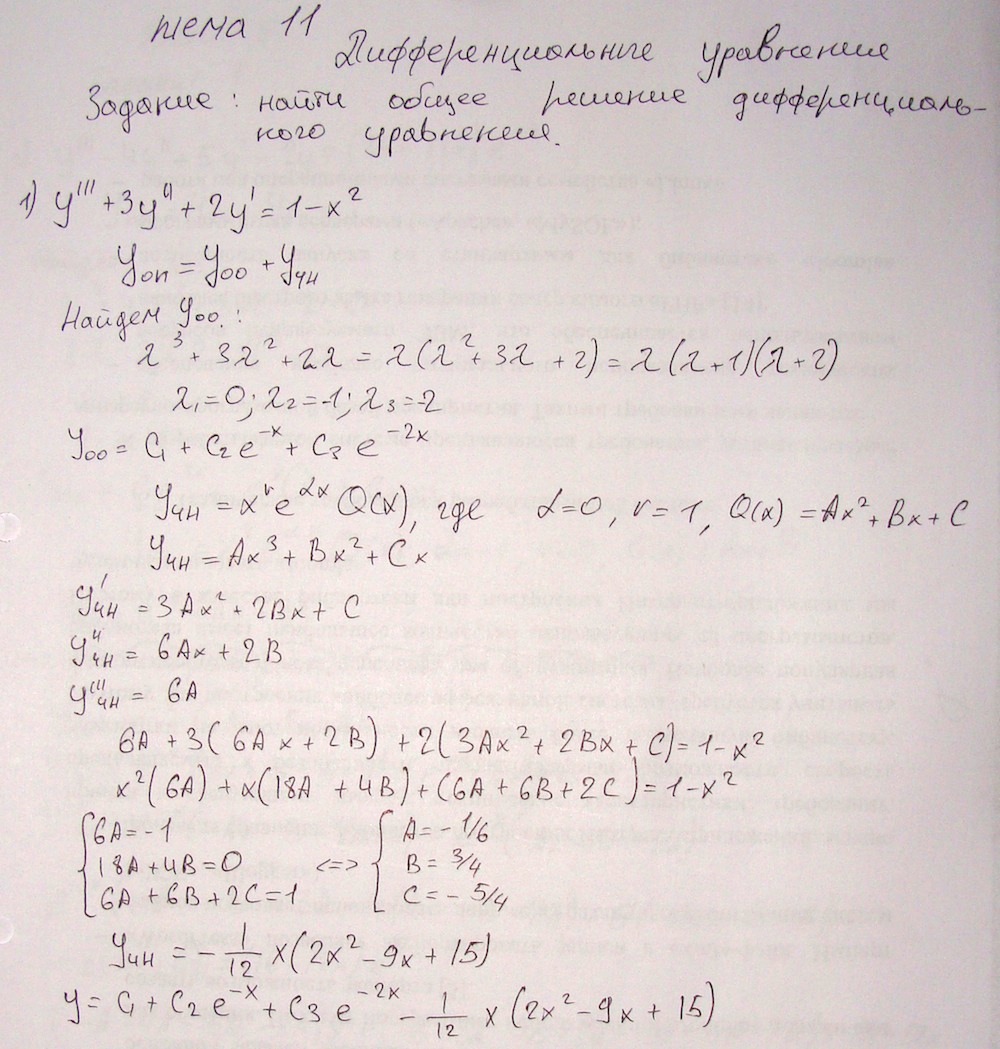 тема 11
Дифференциальные уравнения
Задание: найти общее решение дифференциаль-
ного уравнения.
1) y''' + 3y'' + 2y' = 1 - x²
yоп = yоо + yчн
Найдем yоо:
λ³ + 3λ² + 2λ = λ(λ² + 3λ + 2) = λ(λ+1)(λ+2)
λ₁=0; λ₂=-1; λ₃=-2
yоо = C₁ + C₂e⁻ˣ + C₃e⁻²ˣ
yчн = xʳ e^αx Q(x), где α=0, r=1, Q(x) = Ax² + Bx + C
yчн = Ax³ + Bx² + Cx
y'чн = 3Ax² + 2Bx + C
y''чн = 6Ax + 2B
y'''чн = 6A
6A + 3(6Ax + 2B) + 2(3Ax² + 2Bx + C) = 1 - x²
x²(6A) + x(18A + 4B) + (6A + 6B + 2C) = 1 - x²
{6A = -1 {A = - 1/6
18A + 4B = 0 <=> B = 3/4
6A + 6B + 2C = 1 C = - 5/4
yчн = - 1/12 x(2x² - 9x + 15)
y = C₁ + C₂e⁻ˣ + C₃e⁻²ˣ 1/12 x(2x² - 9x + 15)